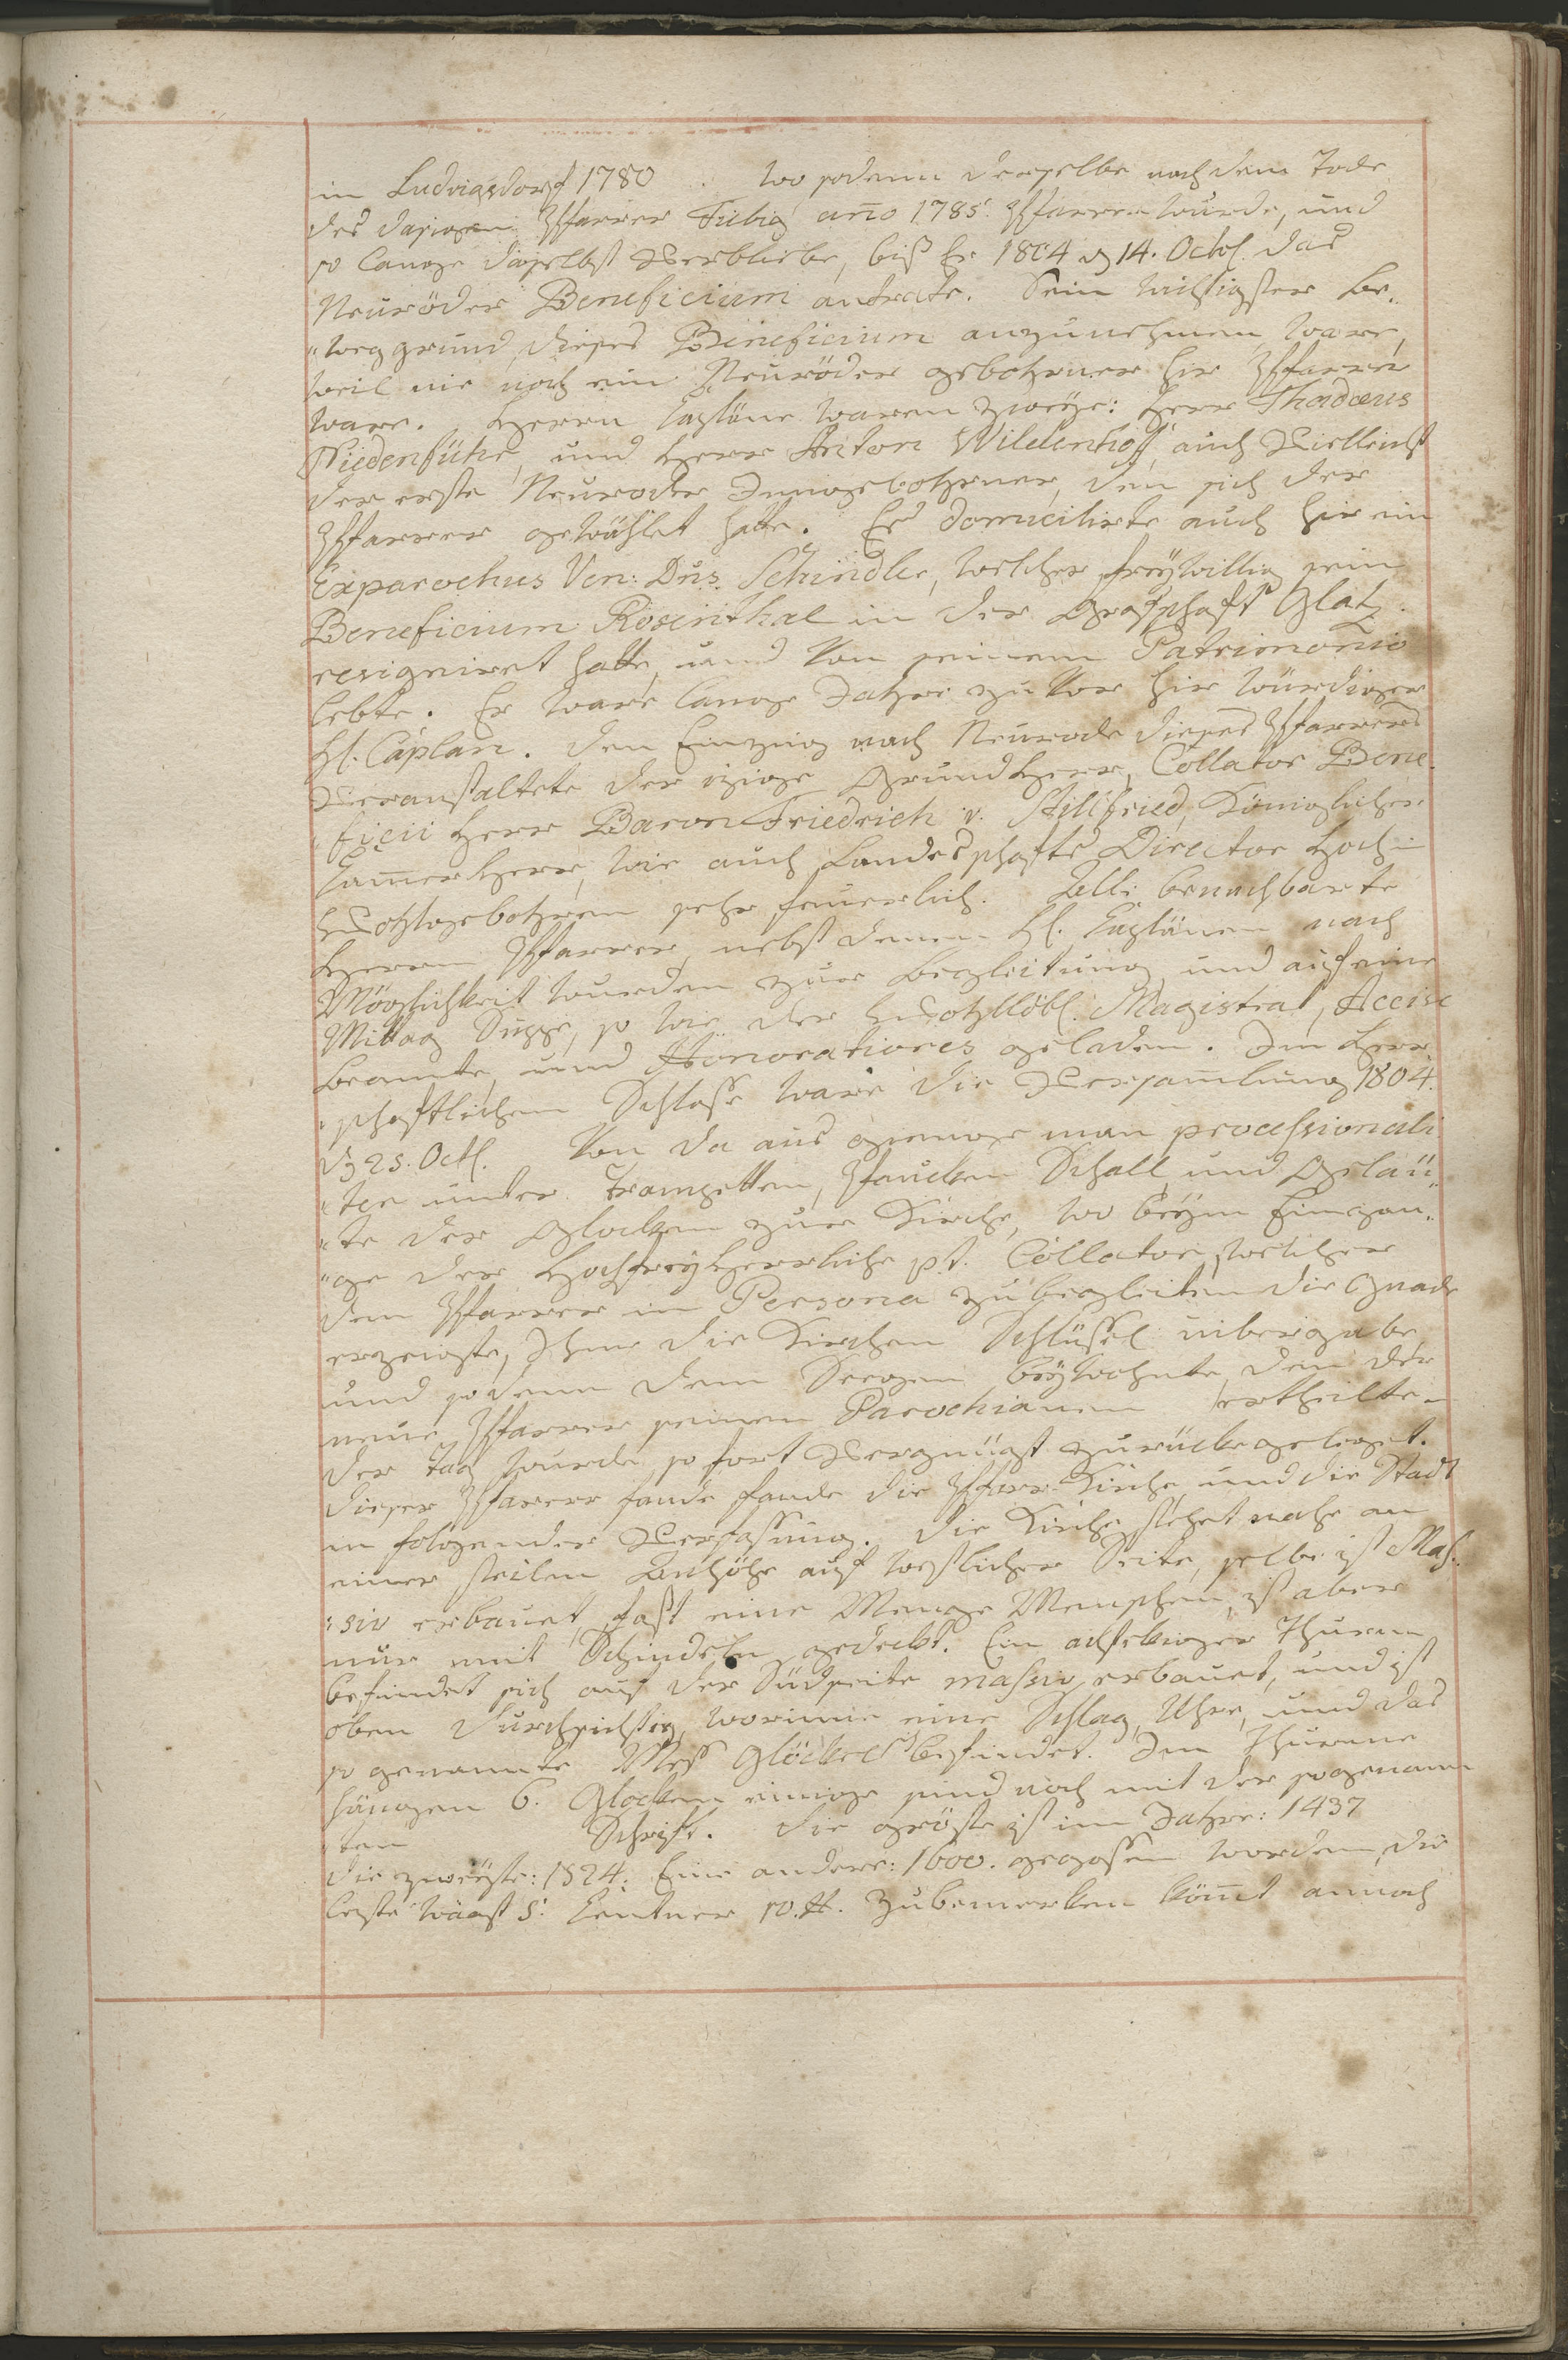 in Ludwigsdorf 1780 . wo sodenn derselbe nach dem Tode
des dasigen Pfarrer Fiebig año 1785. Pfarrer wurde, und
so lange daselbst verbliebe, biß Er 1804 d 14. Octob. das
Neuröder Beneficium antrate. Sein wichtigster Be„
„weggrund dieses Beneficium anzunehmen ware,
weil nie noch ein Neuröder gebohrner hir Pfarrer
ware. Herrn Capläne waren zweye: Herr Thadæus
Niedenführ, und Herr Anton Wildenhoff, auch vielleicht
der erste Neuroder Inngebohrner, den sich der
Pfarrer gewählet hatte. Es domicilirte auch hir ein
Exparochus Ven: Dn̄s. Schindler, welcher freywillig sein
Beneficium Rosenthal in der Grafschaft Glatz
resigniret hatte, und von seinem Patrimonio
lebte. Er ware lange Jahre zuvor hir würdiger
H. Caplan. Den Einzug nach Neurode dieses Pfarrers
veranstaltete der izige Grundherr, Collator Bene„
„ficii Herr Baron Friedrich v. Stillfried, Königlicher
Kam̄erherr, wie auch Landeschafts Director Hoch-
wohlgebohren sehr feuerlich. Alle benachbarte
Herrn Pfarrer, nebst denen H. Caplänen nach
Möglichkeit wurden zur Begleitung und auf eine
Mittag Suppe, so wie der wohllöbl. Magistrat, Accise
Beamte, und Honoratiores geladen. Im Herr„
„schaftlichen Schlosse ware die Versam̄lung 1804.
d 25. Oct. Von da aus gienge man processionali„
„ter unter Trompetten, Paucken Schall, und Geläu„
„te der Glocken zur Kirche, wo beym Eingan„
„ge der Hochfreyherrliche pt. Collator, welcher
den Pfarrer in Persona zubegleiten die Gnade
erzeigte, Ihme die Kirchen Schlüssel übergabe
und sodenn dem Seegen beywohnte, den der
neue Pfarrer seinen Parochianen ertheilte.
Der Tag wurde sofort vergnügt zurückgeleget.
Dieser Pfarrer fande fande die Pfarr-Kirche und die Stadt
in folgender Verfassung. Die Kirche stehet nahe an
einer steilen Anhöhe auf westlicher Seite, selbe ist Mas„
„siv erbauet, fast eine Menge Menschen, ist aber
nur mit Schindeln gedeckt. Ein achtekiger Thurm
befindet sich auf der Südseite massiv erbauet, und ist
oben durchsichtig, worinne eine Schlag Uhre, und das
so genannte Meß Glöckel befindet. Im Thurme
hängen 6. Glocken einige sind noch mit der sogenann
ten Schrift. Die gröste ist im Jahre: 1437
die zweyte: 1524. Eine andere: 1600. gegossen worden, die
lezte wäegt 5. Centner 10. ℔. Zubemerken köm̄t annoch